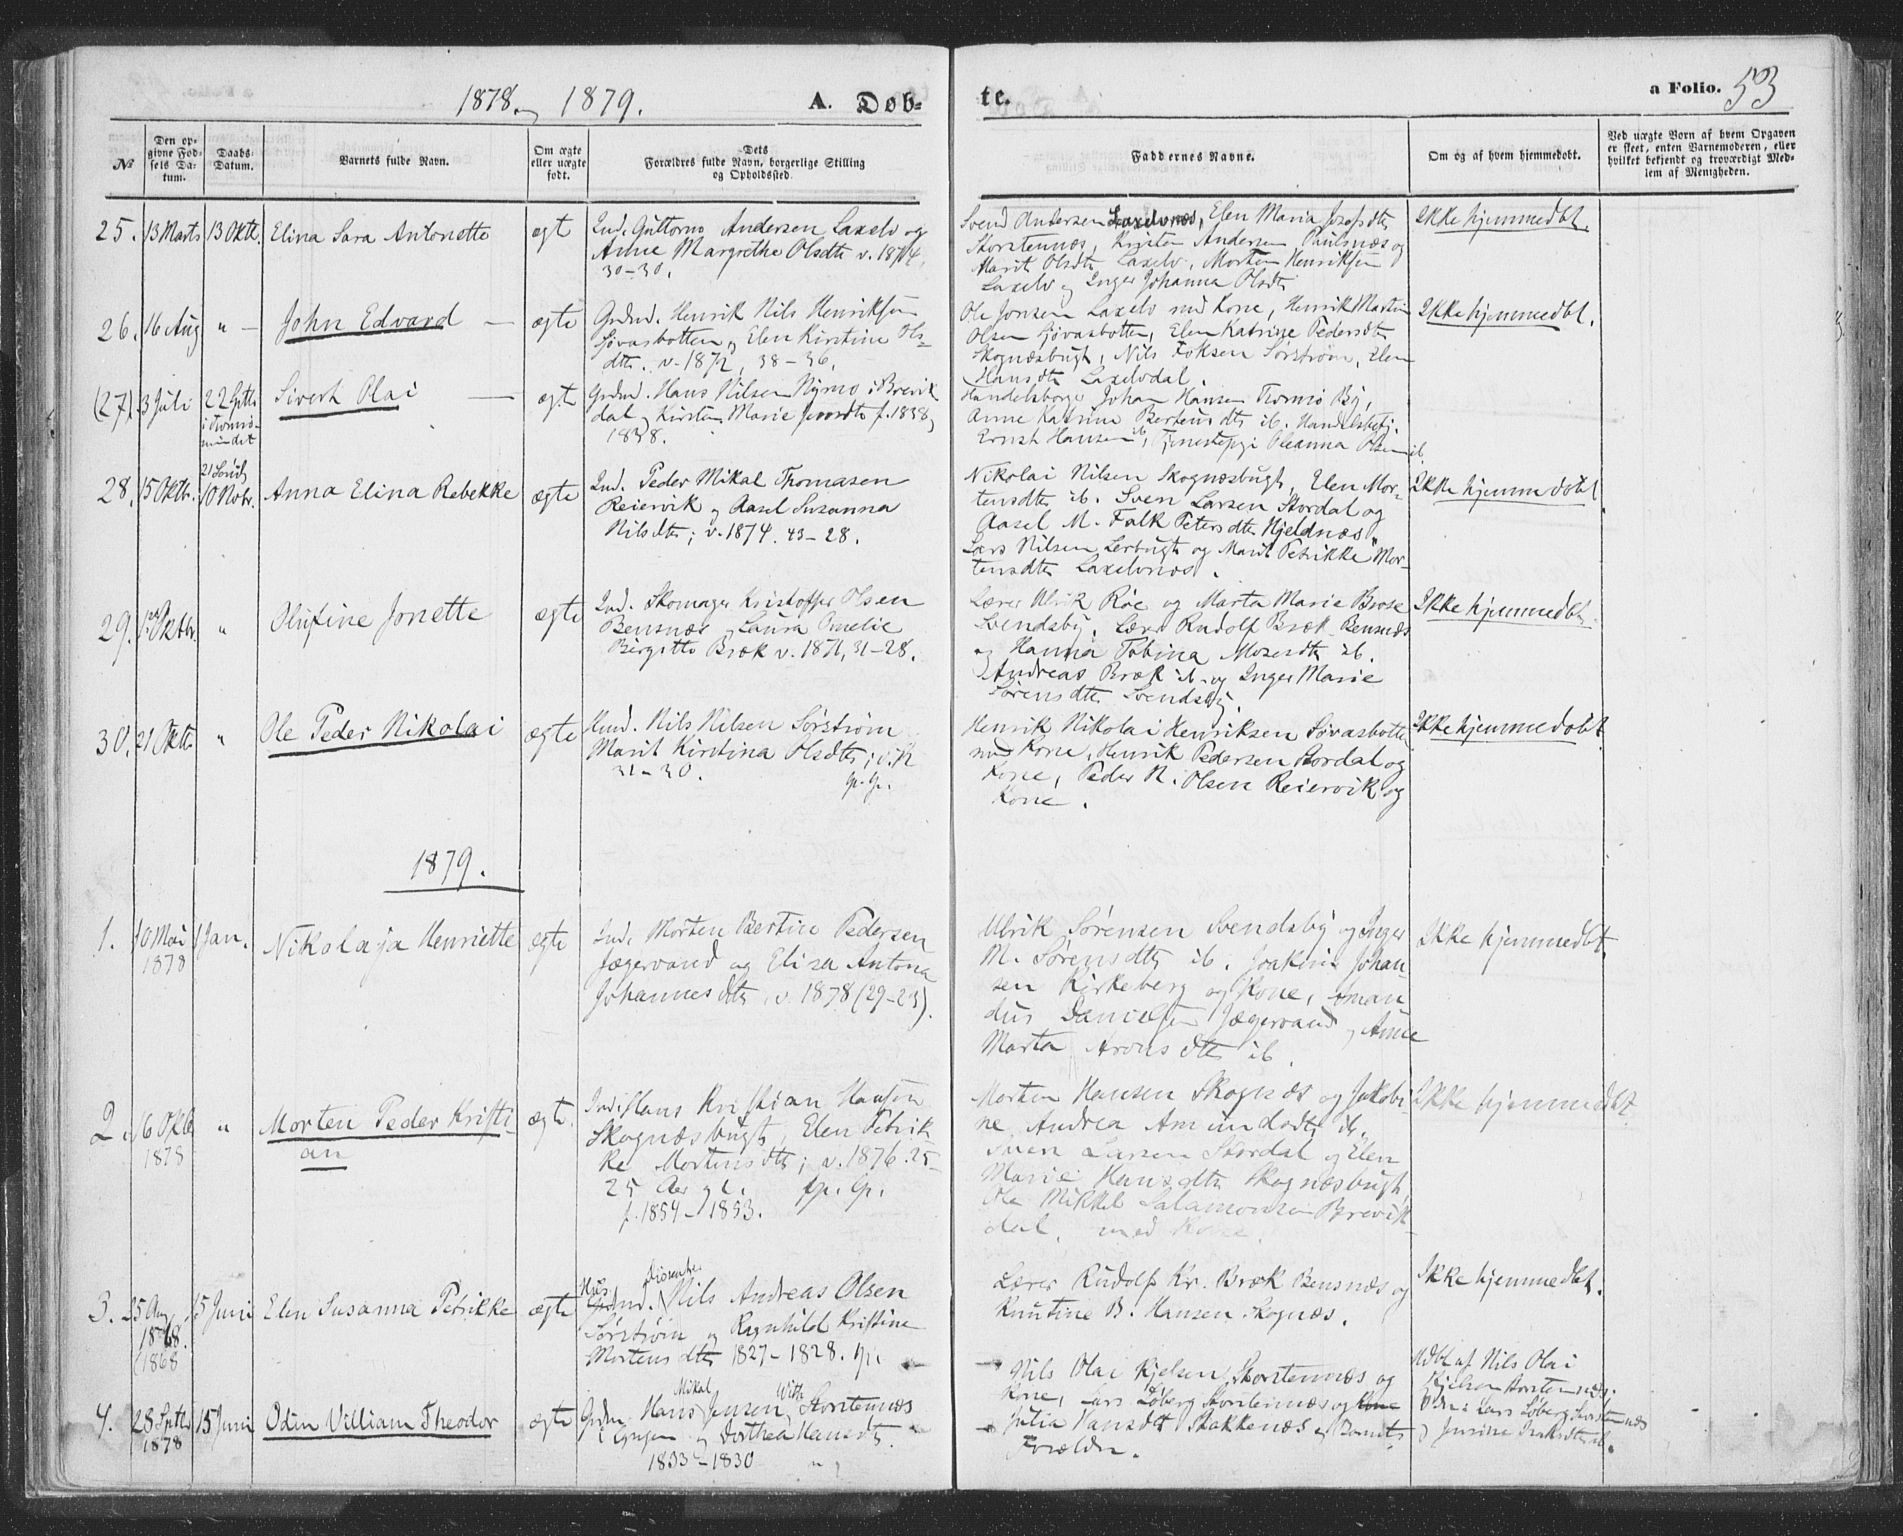 1878 og 1879. A. Dob-
te. a Folio. 53
№
Den op-
givne Fød-
sels Da-
tum.
Daabs-
Datum.
Barnets fulde Navn.
Om ægte
eller uægte
født.
Dets
Forældres fulde Navn, borgerlige Stilling
og Opholdssted.
Faddernes Navne.
Om og af hvem hjemmedøbt.
Ved uægte Børn af hvem Opgaven
er skeet, enten Barnemoderen, eller
hvilket bekjendt og troværdigt Med-
lem af Menigheden.
25. 13 Marts 13 Oktbr. Elina Sara Antonette ægt
Ind. Guttorm Andersen Laxelv og
Anne Margrethe Olsdtr v. 1874,
30-30.
Svend Andersen Laxelvnæs, Elen Maria Josefsdtr
Storstennæs, Kristen Andersen Paulsnæs og
Marit Olsdtr Laxelv, Morten Henriksen
Laxelv og Inger Johanna Olsdtr
Ikke hjemmedbt.
26. 16 Aug " — John Edvard — ægte
Grdmd. Henrik Nils Henriksen
Sjøvasbotten og Elen Kirstine Ols-
dtr. v. 1872, 38-36.
Ole Jonsen Laxelv med Kone, Henrik Martin
Olsen Sjøvasbotten, Elen Katrine Pedersdtr
Skognæsbugt, Nils Foksen Sørstrøm, Elen
Hansdtr Laxelvdal.
Ikke hjemmedbt.
(27). 3 Juli 22 Sptbr i Tromsø-
sundet
Sivert Olai — ægte
Grdmd. Hans Nilsen Nymo i Brevik
dal og Kirsten Marie Jensdtr f. 1838,
1838.
Handelsborger Johan Hansen Tromsø By,
Anne Katrine Bertensdtr ib. Handelsbetj.
Ernst Hansen ib, Tjenestepige Oleanna Olsen ib.
28. 15 Oktbr. 10 Novbr. Anna Elina Rebekke ægte
Ind. Peder Mikal Thomasen
Reiervik og Aasel Susanna
Nilsdtr; v. 1874. 43-28.
Nikolai Nilsen Skognæsbugt, Elen Mor-
tensdtr ib. Sven Larsen Stordal og
Aasel M. Falk Petersdtr Hjeldnæs,
Lars Nilsen Lerbugt og Marit Petrikke Mor-
tensdtr Laxelvnæs.
Ikke hjemmedøbt
29. Oktbr. " Olufine Jonette ægte
Ind. Skomager Kristoffer Olsen
Bensnæs og Laura Amelie
Birgitte Bræk v. 1871, 31-28.
Lærer Ulrik Røe og Marta Marie Brose
Svendsby. Lærer Rudolf Bræk Bensnæs
og Hanna Tobina Mosesdtr ib.
Andreas Bræk ib. og Inger Marie
Sørensdtr Svendsby.
Ikke hjemmedbt.
30. 21 Oktbr " Ole Peder Nikolai ægte
Nils Nilsen Sørstrøm
Marit Kirstina Olsdtr; v.
31-30.
Henrik Nikolai Henriksen Sjøvasbotten
med Kone, Henrik Pedersen Stordal og
Kone, Peder N. Olsen Reiervik og
Kone.
Ikke hjemmedøbt.
1879.
1. 10 Mai
1878
1 Jan. Nikolaja Henriette ægte
Ind. Morten Bertin Pedersen
Jægervand og Elisa Antona
Johannesdtr, v. 1878 (29-23).
Ulrik Sørensen Svendsby og Inger
M. Sørensdtr ib. Joakim Johan-
sen Kirkeberg og Kone, Aman
dus Danielsen Jægervand og Anne
Marta Aronsdtr ib.
Ikke hjemmedbt.
2. 16 Oktb
1878
" Morten Peder Kristi-
an
ægte
Ind. Hans Kristian Hansen
Skognæsbugt, Elen Petrik
ke Mortensdtr; v. 1876. 25-
25 Aar gl.
f. 1854-1853.
Morten Hansen Skognæs og Jakobi-
ne Andrea Amundsdtr ib.
Sven Larsen Stordal og Elen
Marie Hansdtr Skognæsbugt
Ole Mikkel Salamonsen Brevik
dal, med Kone.
Ikke hjemmedbt
3. 25 Aug
1868.
(1868
15 Juni Elen Susanna Petrikke ægte
Dissenter
Nils Andreas Olsen
Sørstrøm og Ragnhild Kristine
Mortensdtr 1827-1828.
Lærer Rudolf Kr. Bræk Bensnæs og
Knutine B. Hansen Skognæs.
Ikke hjemmedbt.
4. 28 Sptbr
1878
15 Juni Odin Villiam Theodor ægte
Grdm. Hans Mikal Jensen With Storstennæs
i Lyngen og Dorthea Hansdtr
1833-1830
Nils Olai Kjelsen Storstennæs og
Kone, Lars Løberg Storstennæs og Kone
Julia Hansdtr Stakkenæs og Barnets
Forældre.
Ndbt af Nils Olai
Kjelsen Storstennæs.
Vidne: Lars Løberg Storstennæs